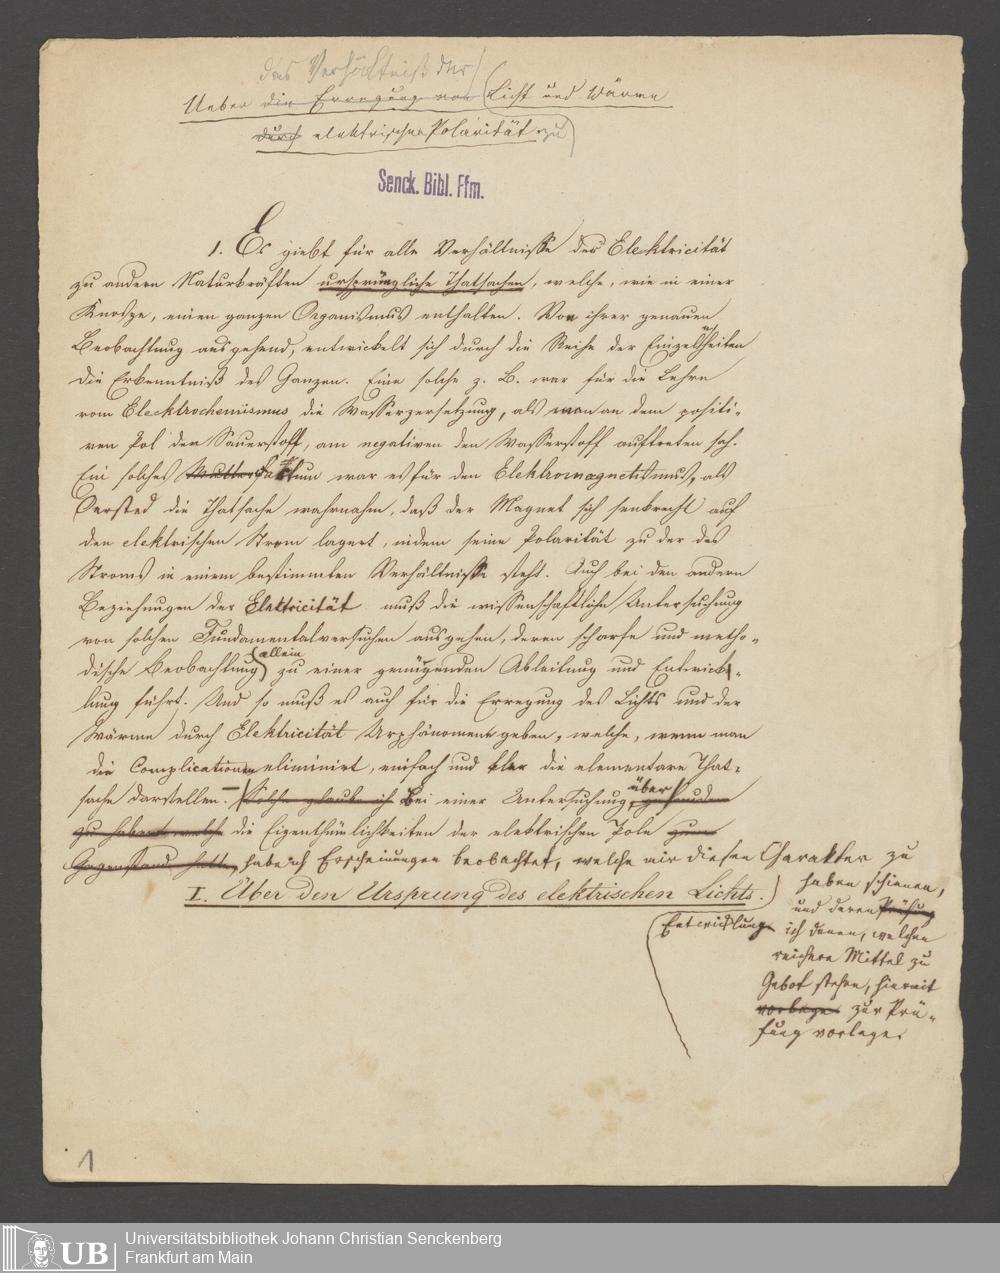 das Verhältniß des
Ueber die Erregung von Licht und Wärme
durch elektrische Polarität zu
Senck. Bibl. Ffm.
1. Es giebt für alle Verhältnisse der Elecktricität
zu andern Naturkräften ursprüngliche Thatsachen, welche, wie in einer
Knospe, einen ganzen Organismus enthalten. Von ihrer genauen
Beobachtung ausgehend, entwickelt sich durch die Reihe der Einzelnheiten
die Erkenntniß des Ganzen. Eine solche z. B. war für die Lehre
vom Elecktrochemismus die Wasserzersetzung, als man an dem positi-
ven Pol den Sauerstoff, am negativen den Wasserstoff auftreten sah.
Ein solches Mutterfaktum war es für den Elektromagnetismus, als
Oersted die Thatsache wahrnahm, daß der Magnet sich senkrecht auf
den elektrischen Strom lagert, indem seine Polarität zu der des
Stroms in einem bestimmten Verhältnisse steht. Auch bei den andern
Beziehungen der Elektricität muß die wissenschaftliche Untersuchung
von solchen Fundamentalversuchen ausgehen, deren scharfe und metho-
dische Beobachtung allein zu einer genügenden Ableitung und Entwick-
lung führt. Und so muß es auch für die Erregung des Lichts und der
Wärme durch Elektricität Urphänomene geben, welche, wenn man
die Complicationen eliminirt, einfach und klar die elementare That-
sache darstellen. – Solche glaube ich Bei einer Untersuchung über gefunden
zu haben welche die Eigenthümlichkeiten der elektrischen Pole zum
Gegenstand hatte, habe ich Erscheinungen beobachtet, welche mir diesen Charakter zu
haben schienen,
und deren Prüfung
ich denen, welchen
reichere Mittel zu
Gebot stehen, hiermit
vorlege zur Prü-
fung vorlege.
I. Über den Ursprung des elektrischen Lichts.
Entwicklung
1
UB
Universitätsbibliothek Johann Christian Senckenberg
Frankfurt am Main